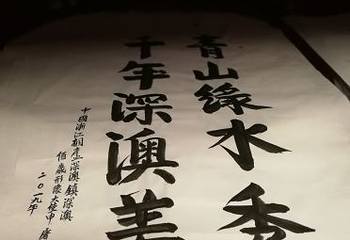 青山綠水秀
千年深澳美
中國浙江桐廬深澳鎮深澳
佰歲形象大使申屠
二〇一九年